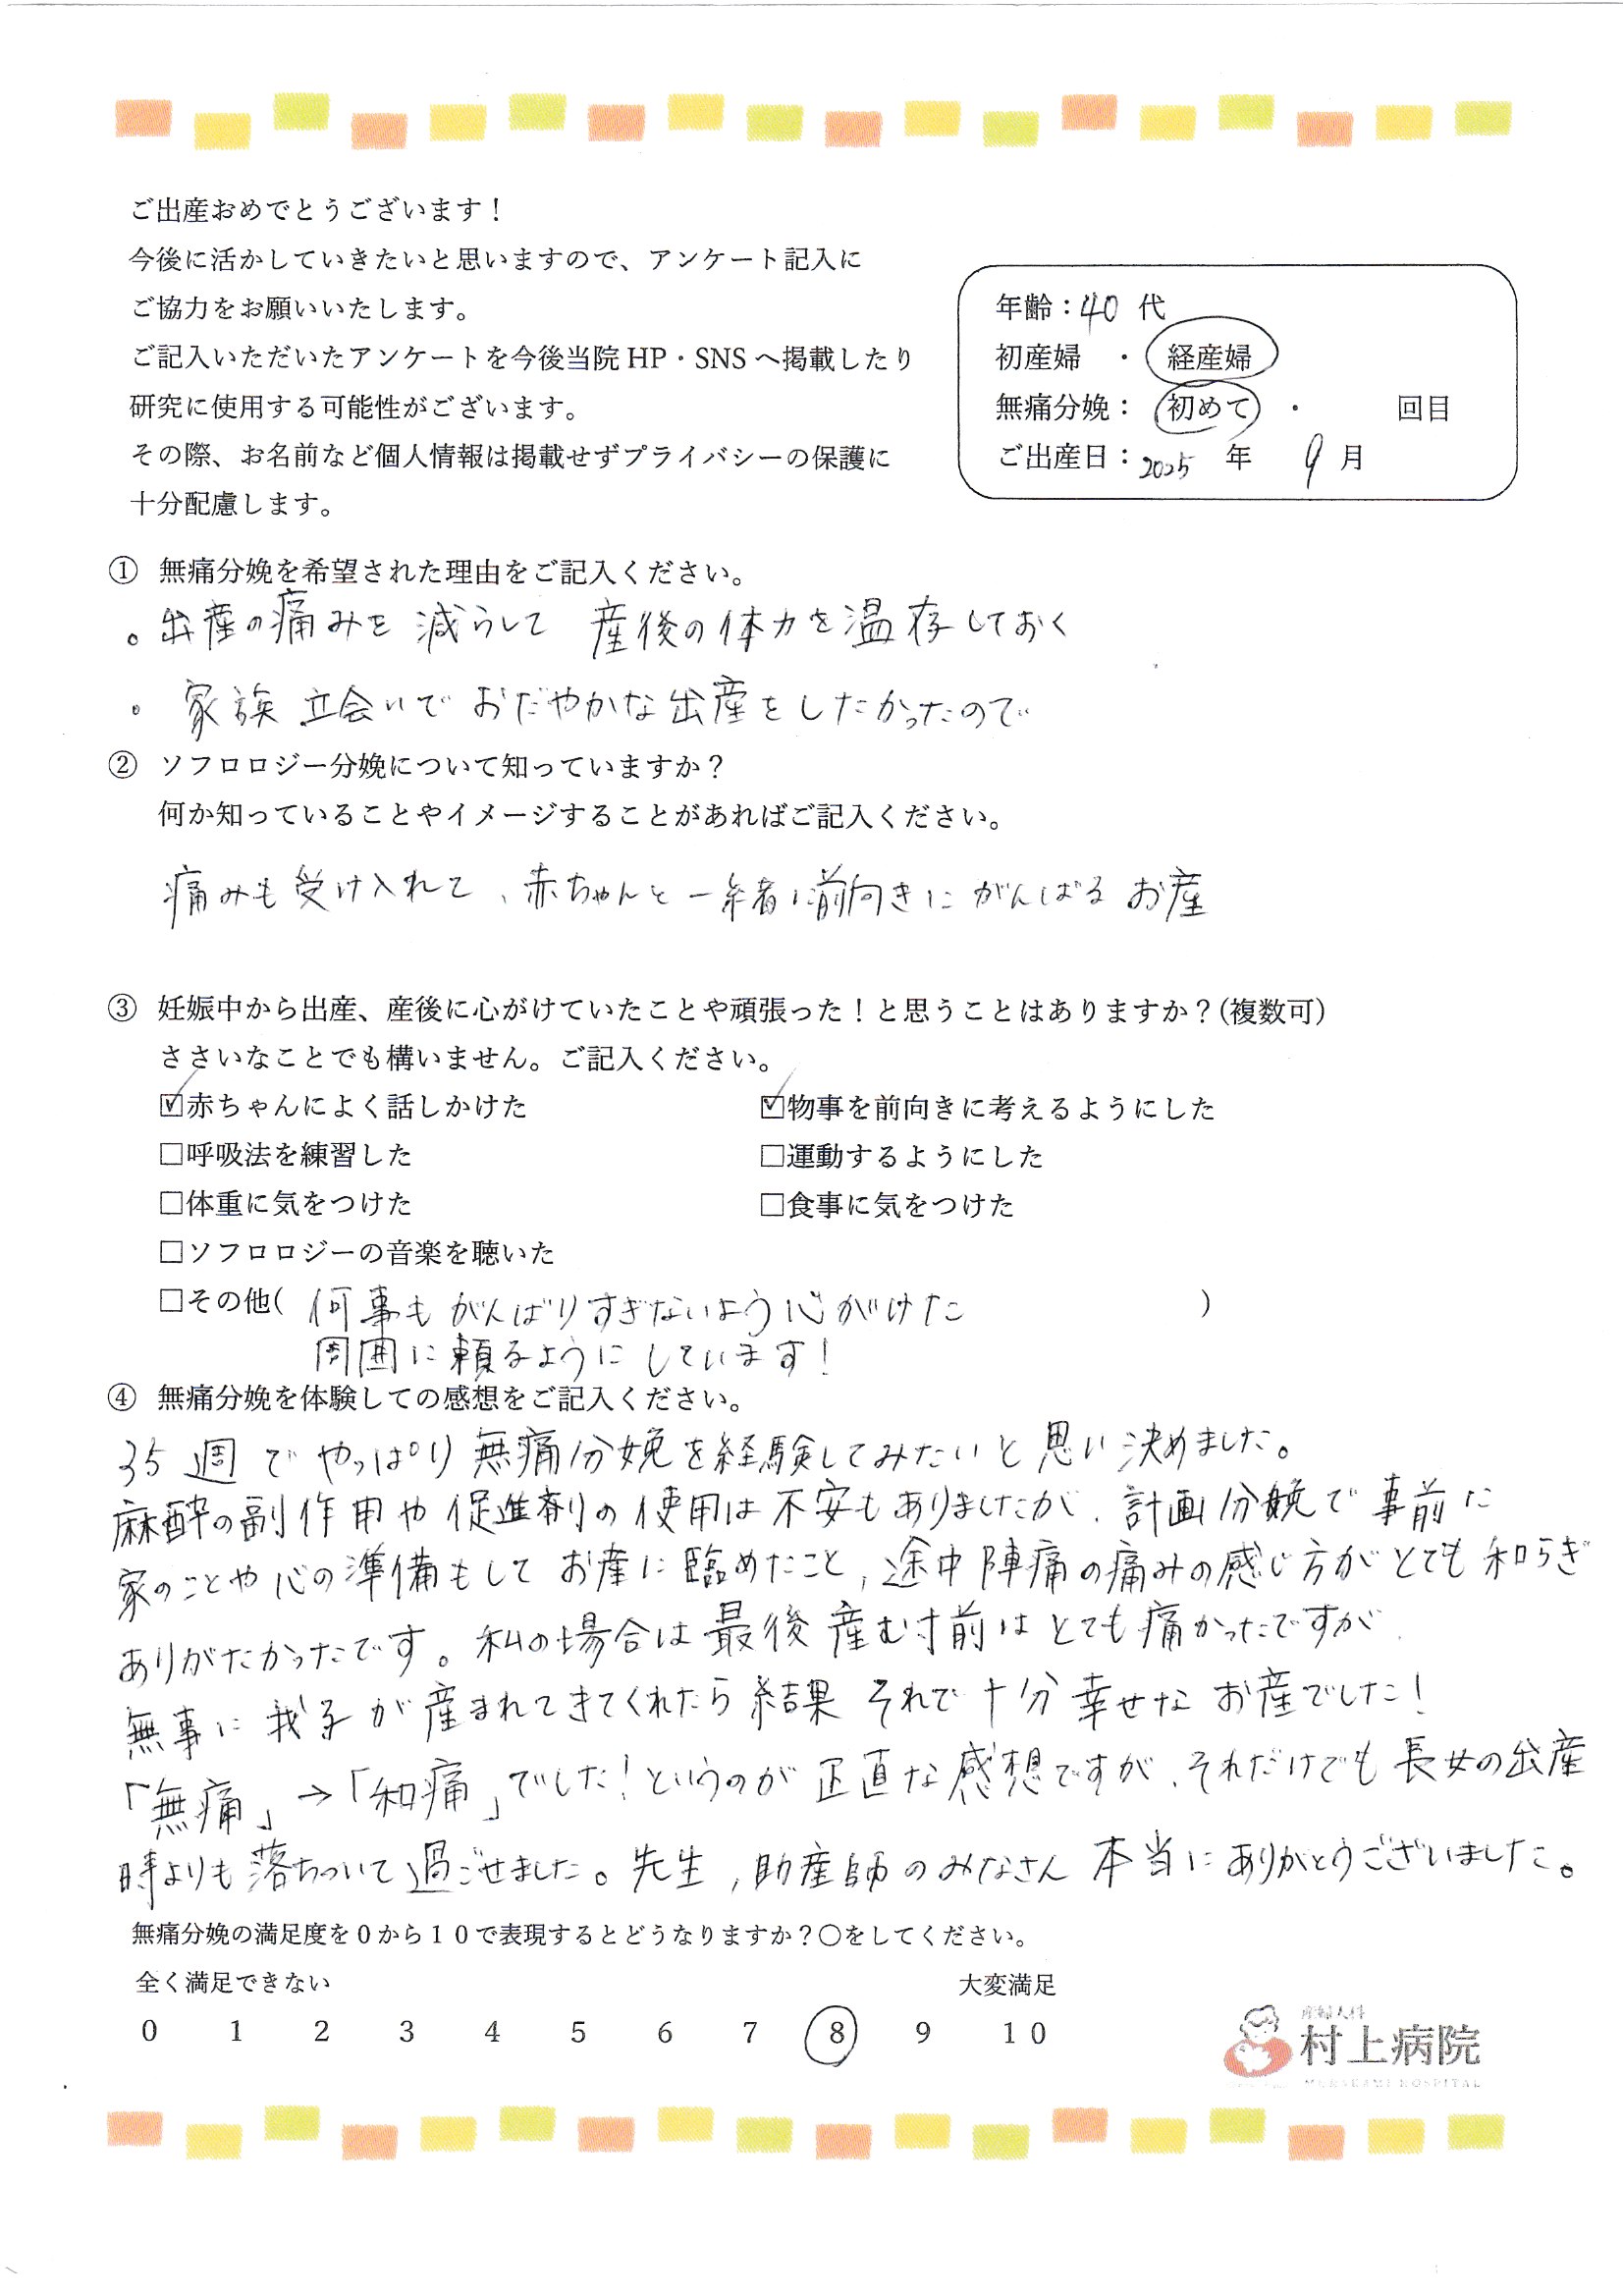 ご出産おめでとうございます！
今後に活かしていきたいと思いますので、アンケート記入に
ご協力をお願いいたします。
ご記入いただいたアンケートを今後当院 HP・SNS へ掲載したり
研究に使用する可能性がございます。
その際、お名前など個人情報は掲載せずプライバシーの保護に
十分配慮します。
年齢：40 代
初産婦 ・ 経産婦
無痛分娩： 初めて ・ 回目
ご出産日：2025 年 9 月
① 無痛分娩を希望された理由をご記入ください。
。出産の痛みを 減らして 産後の体力を温存しておく
。家族 立会いで おだやかな出産をしたかったので
② ソフロロジー分娩について知っていますか？
何か知っていることやイメージすることがあればご記入ください。
痛みも受け入れて、赤ちゃんと一緒に前向きに がんばる お産
③ 妊娠中から出産、産後に心がけていたことや頑張った！と思うことはありますか？(複数可)
ささいなことでも構いません。ご記入ください。
☑赤ちゃんによく話しかけた ☑物事を前向きに考えるようにした
□呼吸法を練習した □運動するようにした
□体重に気をつけた □食事に気をつけた
□ソフロロジーの音楽を聴いた
□その他( 何事も がんばりすぎないよう 心がけた )
周囲に頼るようにしています！
④ 無痛分娩を体験しての感想をご記入ください。
35 週で やっぱり 無痛分娩を経験してみたいと思い決めました。
麻酔の副作用や 促進剤の使用は不安もありましたが、計画分娩で事前に
家のことや心の準備もして お産に臨めたこと、途中陣痛の痛みの感じ方がとても和らぎ
ありがたかったです。私の場合は最後産む寸前はとても痛かったですが、
無事に我子が産まれてきてくれたら結果 それで十分幸せな お産でした！
「無痛」→「和痛」でした！というのが正直な感想ですが、それだけでも長女の出産
時よりも落ちついて過ごせました。先生、助産師のみなさん 本当にありがとうございました。
無痛分娩の満足度を０から１０で表現するとどうなりますか？○をしてください。
全く満足できない 大変満足
0 1 2 3 4 5 6 7 8 9 10
産婦人科
村上病院
MURAKAMI HOSPITAL